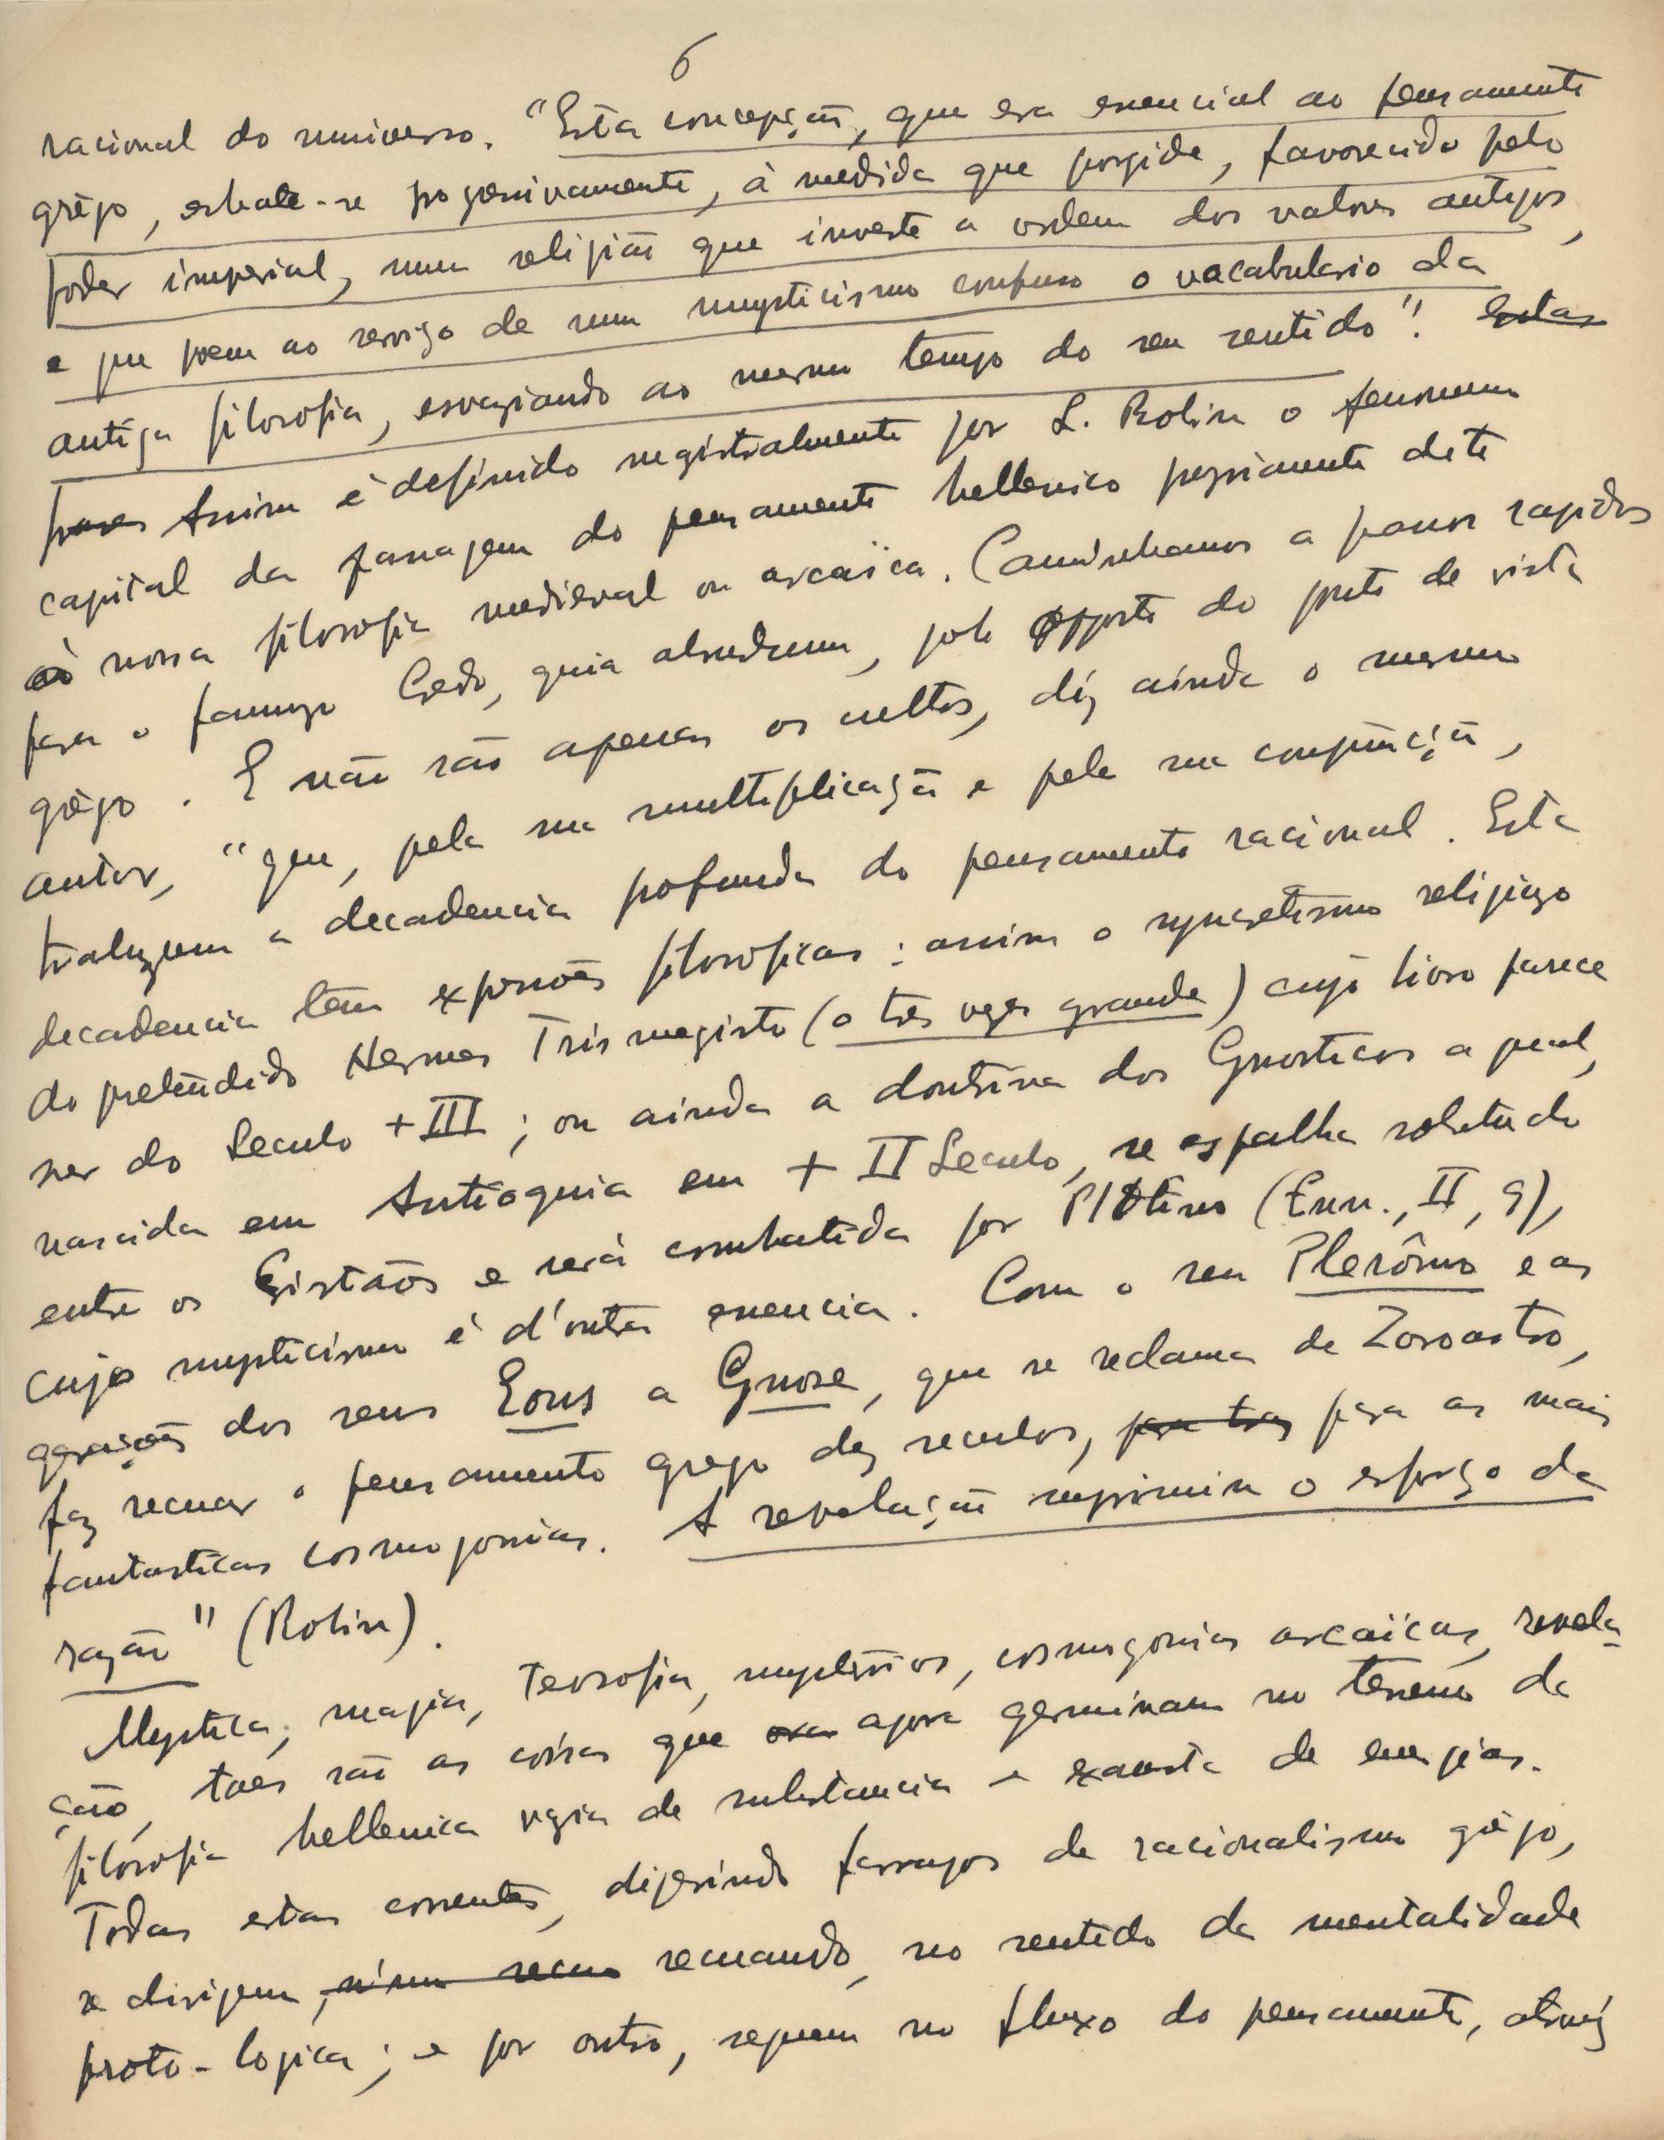 6
racional do universo. "Esta concepção, que era essencial ao pensamento
grêgo, esbate-se progressivamente, à medida que progide, favorecida pelo
poder imperial, uma religião que inverte a ordem dos valores antigos,
e que poem ao serviço de um mysticismo confuso o vocabulario da
antiga filosofia, esvaziando ao mesmo tempo do seu sentido". Estas
frases Assim é definido magistralmente por L. Robin o fenomeno
capital da passagem do pensamento hellenico propriamente dito
à nossa filosofia medieval ou arcaica. Caminhamos a passos rapidos
para o famoso Credo, quia absurdum, polo opposto do ponto de vista
grêgo. E não são apenas os cultos, diz ainda o mesmo
autor, "que, pela sua multiplicação e pela sua conjunção,
traduzem a decadencia profunda do pensamento racional. Esta
decadencia tem expressões filosoficas: assim o syncretismo religiozo
do pretendido Hermes Trismegisto (o tres vezes grande) cujo livro parece
ser do Seculo + III; ou ainda a doutrina dos Gnosticos a qual,
nascida em Antioquia em + II Seculo, se espalha sobretudo
entre os Cristãos e será combatida por Plotino (Enn., II, 9),
cujo mysticismo é d'outra essencia. Com o seu Plerômo e as
gerações dos seus Eons a Gnose, que se reclama de Zoroastro,
faz recuar o pensamento grego dez seculos, para tras para as mais
fantasticas cosmogonias. A revelação suprimiu o esforço da
razão" (Robin).
Mystica, magia, teosofia, mysterios, cosmogonias arcaïcas, revela-
ção, taes são as coisas que ora agora germinam no terreno da
filosofia hellenica vazia de substancia e exausta de energias.
Todas estas correntes, digerindo farrapos de racionalismo grêgo,
se dirigem, n'um recuo recuando, no sentido da mentalidade
proto-logica; e por outro, seguem no fluxo do pensamento, atravez